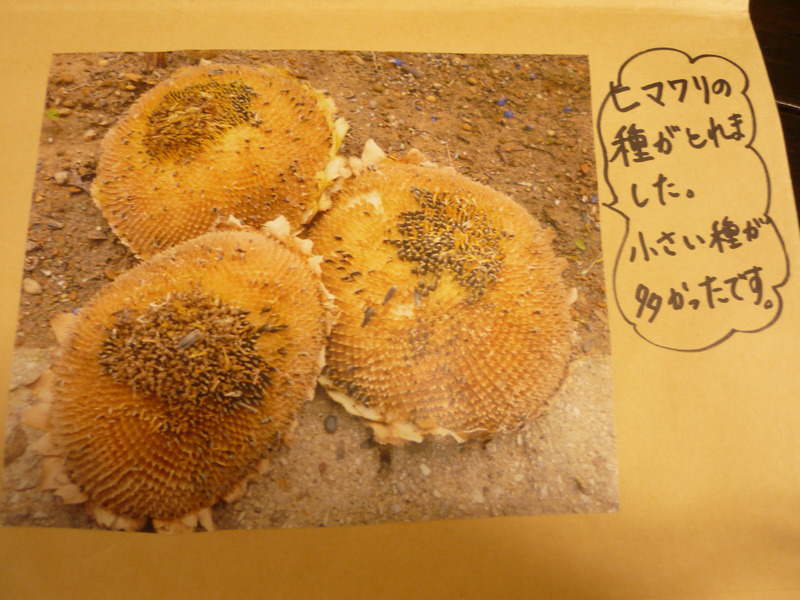 ヒマワリの
種がとれま
した。
小さい種が
多かったです。